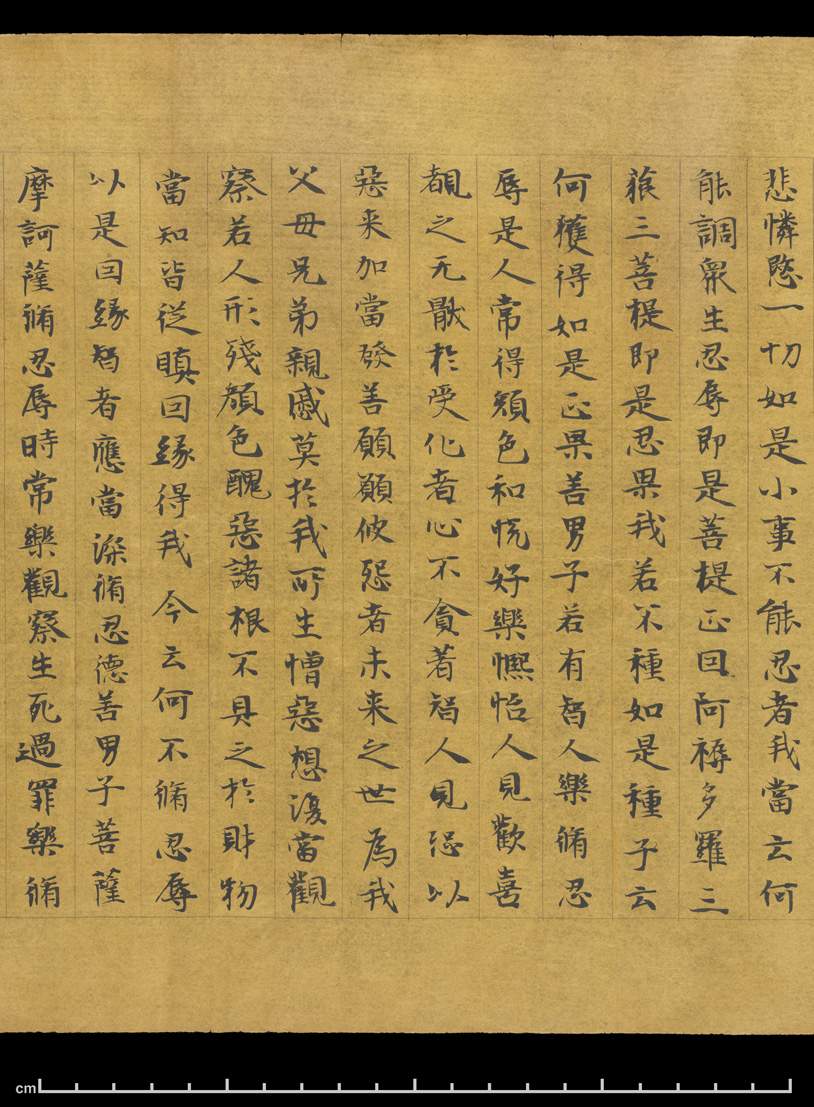 悲憐愍一切如是小事不能忍者我當云何
能調衆生忍辱即是菩提正因阿耨多羅三
藐三菩提即是忍果我若不種如是種子云
何獲得如是正果善男子若有智人樂脩忍
辱是人常得顏色和悅好樂憘怡人見歡喜
覩之无猒於受化者心不貪著智人見惡以
惡来加當發善願願彼惡者未来之世為我
父母兄弟親戚莫於我所生憎惡想復當觀
察若人形殘顏色醜惡諸根不具之於財物
當知皆從瞋因緣得我今云何不脩忍辱
以是因緣智者應當深脩忍德善男子菩薩
摩訶薩脩忍辱時常樂觀察生死過罪樂脩